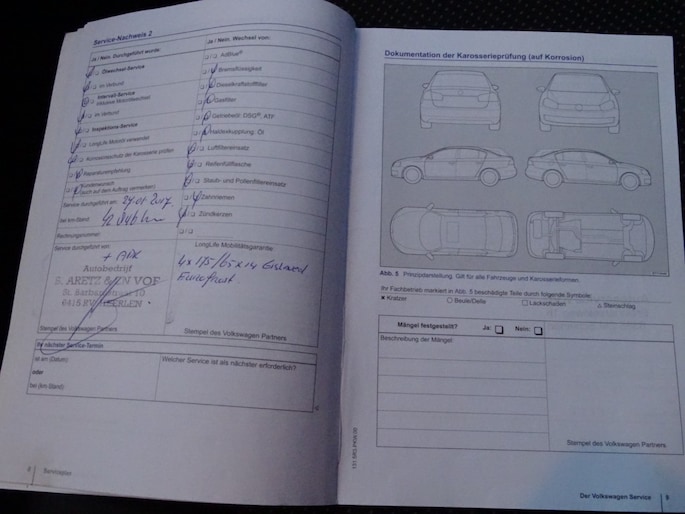 Service-Nachweis 2
Ja / Nein. Durchgeführt wurde:
Ölwechsel-Service
im Verbund
Intervall-Service
inklusive Mobilitätswechsel
im Verbund
Inspektions-Service
LongLife Motoröl verwendet
Korrosionsschutz der Karosserie prüfen
Reparaturempfehlung
Kundenwunsch
(sich auf dem Auftrag vermerken)
Service durchgeführt am: 27.01 2017
bei km-Stand:
Rechnungsnummer:
Service durchgeführt von:
+ APK
Autobedrijf
ARETZ & ZN VOF
St.
Stempel des Volkswagen Partners
Ihr nächster Service-Termin
ist am (Datum):
oder
bei (km-Stand):
Ja / Nein. Wechsel von:
AdBlue®
Bremsflüssigkeit
Dieselkraftstofffilter
Gasfilter
Getriebeöl: DSG®, ATF
Haldexkupplung: Öl
Luftfiltereinsatz
Reifenfüllflasche
Staub- und Pollenfiltereinsatz
Zahnriemen
Zündkerzen
LongLife Mobilitätsgarantie
4 x 175/65 x 14
Stempel des Volkswagen Partners
Welcher Service ist als nächster erforderlich?
8 Serviceplan
Dokumentation der Karosserieprüfung (auf Korrosion)
Abb. 5 Prinzipdarstellung. Gilt für alle Fahrzeuge und Karosserieformen.
Ihr Fachbetrieb markiert in Abb. 5 beschädigte Teile durch folgende Symbole:
Kratzer Beule/Delle Lackschaden Steinschlag
Mängel festgestellt? Ja: Nein:
Beschreibung der Mängel:
Stempel des Volkswagen Partners
Der Volkswagen Service 9